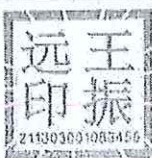 王振
远印
211303001083456